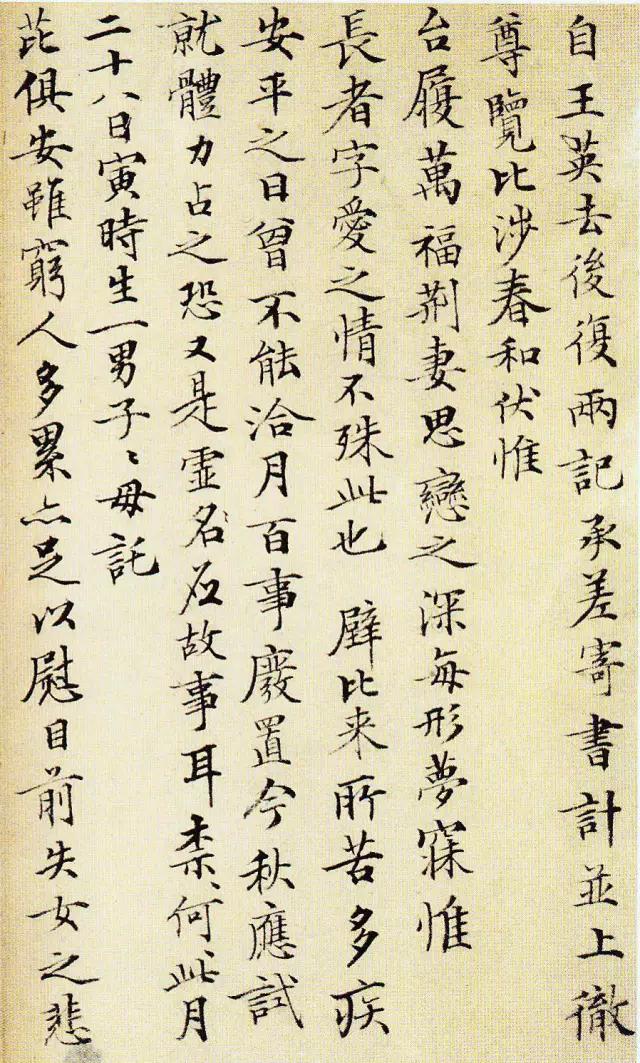 自王英去後復兩記承差寄書計並上徹
尊覽比涉春和伏惟
台履萬福荊妻思戀之深每形夢寐惟
長者字愛之情不殊此也 壁比来所苦多疾
安平之日曾不能洽月百事廢置今秋應試
就體力占之恐又是虛名應故事耳柰何柰何此月
二十八日寅時生一男子子母託
芘俱安雖窮人多累亦足以慰目前失女之悲